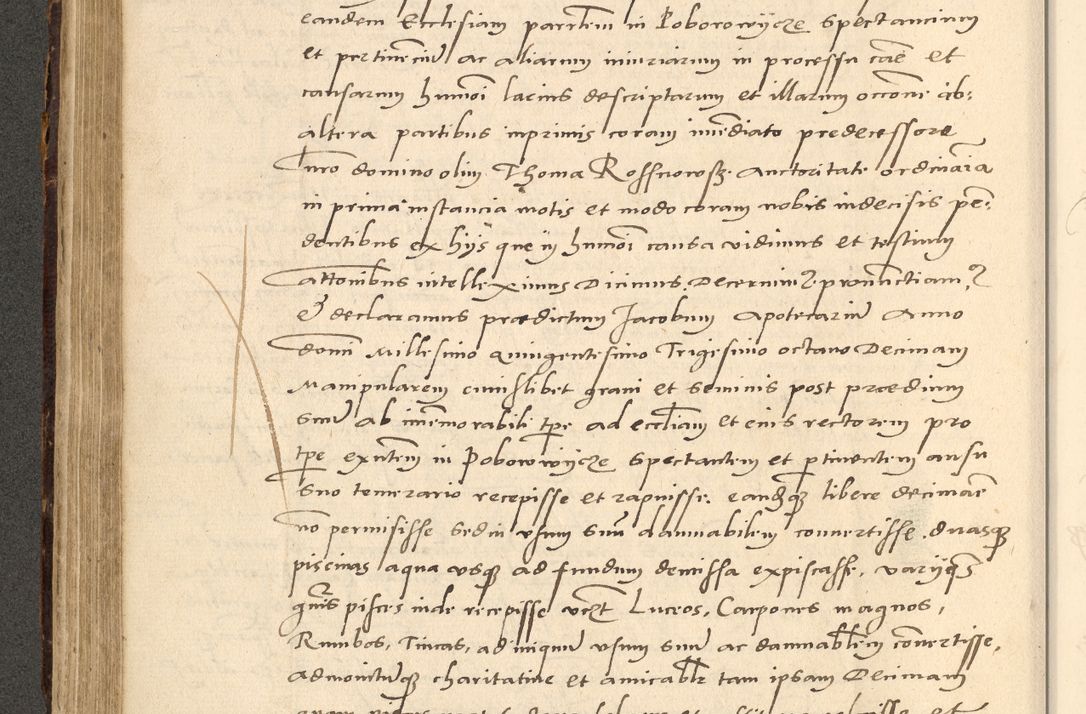 eandem Ecclesiam parrtem in Poborowijcze spectancium
et pertinenciū ac aliarum iniuriarum in processu caē et
causarum hmōi lacius descriptarum et illarum occōne ab
altera partibus inprimis coram imēdiato predecessore
nrō domino olim Thoma Rossnowskj Auctoritate ordinaīa
in prima instancia motis et modo coram nobis indecisis pē
dentibus ex hijs que in hmōi causa vidimus et testium
attōnibus intelleximus Dicimus, Decernim9 pronūctiam9
et declaramus prædictum Jacobum Apotecariū Anno
domi Millesimo Quingentesimo Trigesimo octavo Decimam
Manipularem cuiuslibet grani et seminis post prædium
suū ab imēmorabili tpe ad eccliam et eius rectorem pro
tpe exntem in Poborowijcze spectantem et ptinentem ausu
suo temerario recepisse et rapuisse, eandq libere decimaē
nō permisisse sed in vsum suū damnabilem conuertisse, duasq
piscinas aqua usq ad fundum demissa expiscasse, varijqs
gnis pisces inde recepisse vczt Luceos, Carpones magnos,
Rumbos, Tincas, ad iniquū vsum suū ac damnablem conuertisse,
admonitūq charitatiue et amicablr tam ipsam Decimam